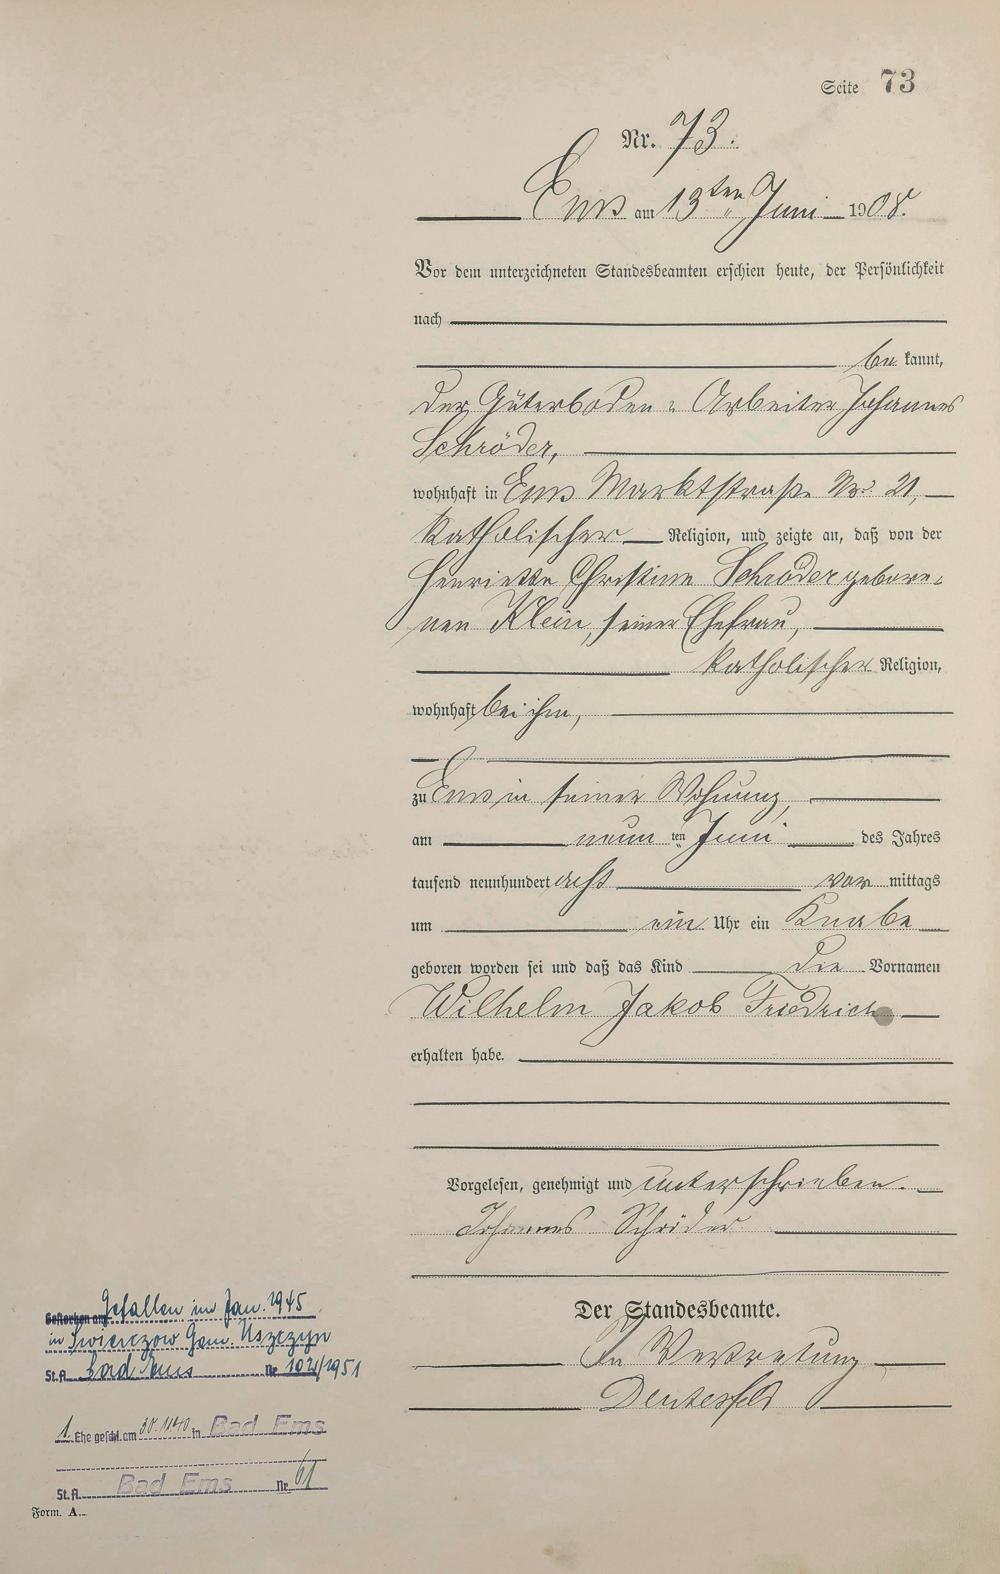 Seite 73
Nr. 73.
Ems am 13ten Juni 1908.
Vor dem unterzeichneten Standesbeamten erschien heute, der Persönlichkeit
nach
be kannt,
der Güterboden-Arbeiter Johannes
Schröder,
wohnhaft in Ems Marktstraße Nr. 21,
katholischer Religion, und zeigte an, daß von der
Henriette Christine Schröder gebore-
nen Klein, seiner Ehefrau,
katholischer Religion,
wohnhaft bei ihm,
zu Ems in seiner Wohnung,
am neun ten Juni des Jahres
tausend neunhundert acht vor mittags
um ein Uhr ein Knabe
geboren worden sei und daß das Kind die Vornamen
Wilhelm Jakob Friedrich
erhalten habe.
Vorgelesen, genehmigt und unterschrieben.
Johannes Schröder
Der Standesbeamte.
In Vertretung
Gestorben am Gefallen im Jan. 1945
in Gem.
St.A. Bad Ems Nr 102/1951
1. Ehe geschl. am 30.11.40 in Bad Ems
St.A. Bad Ems Nr 61
Form. A.